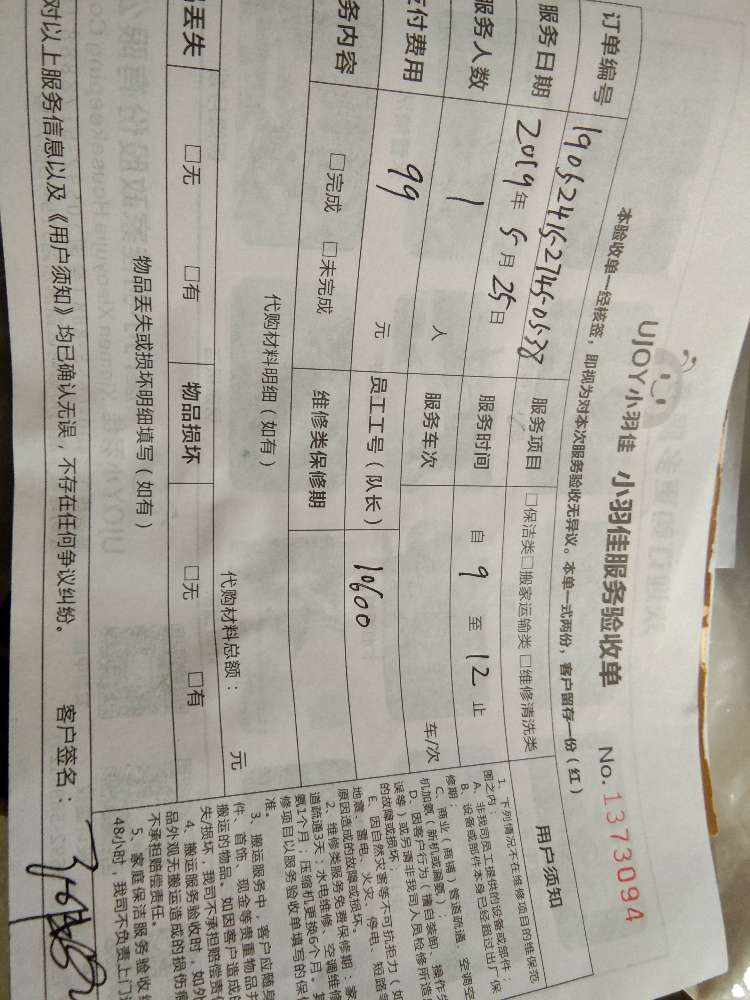 UJOY小羽佳 小羽佳服务验收单 No.1373094
本验收单一经核签，即视为对本次服务验收无异议。本单一式两份，客户留存一份（红）
订单编号 190524152745-0538 服务项目 □保洁类□搬家运输类□维修清洗类
服务日期 2019年5月25日 服务时间 自9至12止
服务人数 1人 服务车次 车/次
付费用 99元 员工工号（队长） 10600
务内容 □完成 □未完成 维修类保修期
代购材料明细（如有） 代购材料总额： 元
丢失 □无 □有 物品损坏 □无 □有
物品丢失或损坏明细填写（如有）
对以上服务信息以及《用户须知》均已确认无误，不存在任何争议纠纷。 客户签名：
用户须知
1、下列情况不在维修项目的维保范
围之内：
A、非我司员工提供的设备或部件；
B、设备或部件本身已经超过出厂保
修期；
C、商业（商博）管道疏通、空调空
机加氨（新机或漏氨）；
D、因客户行为（擅自装卸、操作
误等）或另请非我司人员检修所造
的故障或损坏；
E、因自然灾害等不可抗拒力（如
地震、雷电、火灾、停电、短路
原因造成的故障或损坏。
2、维修类服务免费保修期：家
道疏通3天；水电维修、空调维修
氨1个月；压缩机更换6个月。其
修项目以服务验收单填写的保
准。
3、搬运服务中，客户应随身
件、首饰、现金等贵重物品
搬运的物品。如因客户造成
失/损坏，我司不承担赔偿责
4、搬运服务验收时，如外
品外观无搬运造成的损伤
不承担赔偿责任。
5、家庭保洁服务验收
48小时，我司不负责上门